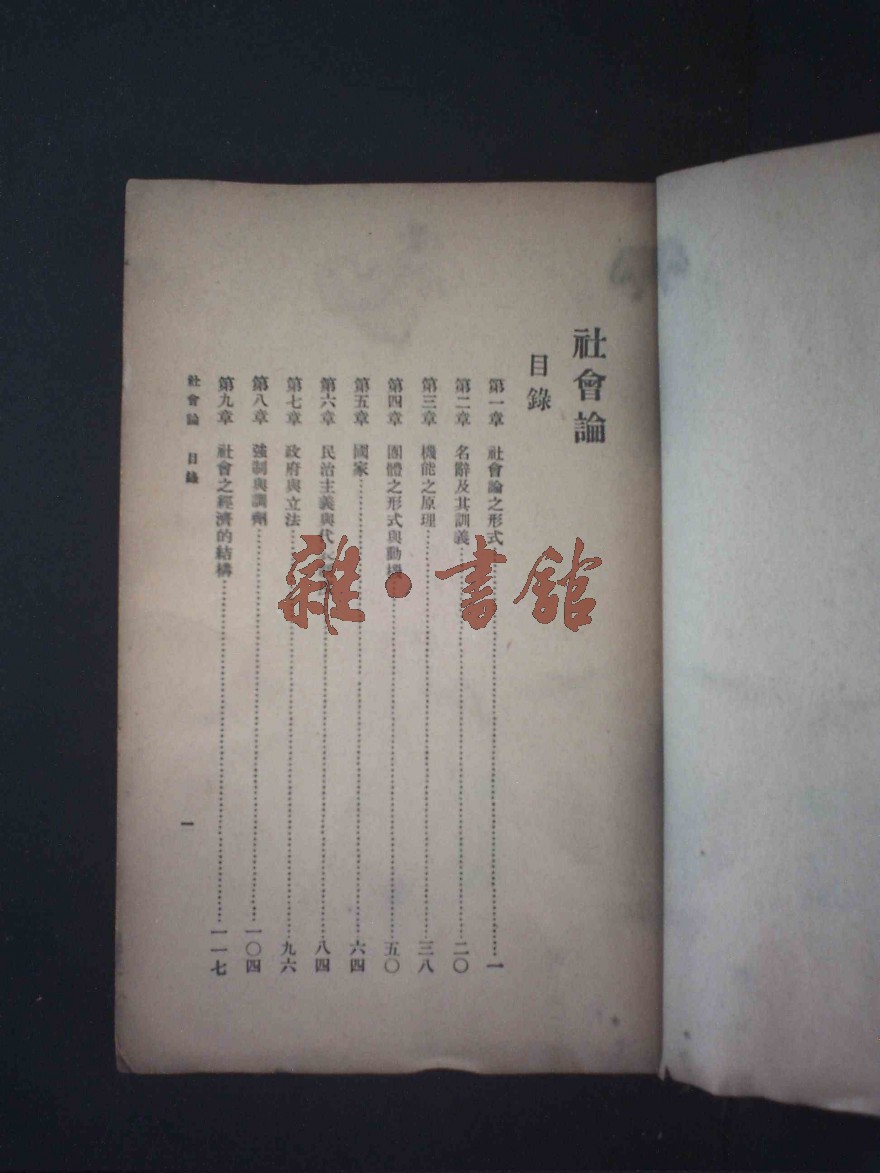 社會論
目錄
第一章 社會論之形式……一
第二章 名辭及其訓義……二〇
第三章 機能之原理……三八
第四章 團體之形式與動機……五〇
第五章 國家……六四
第六章 民治主義與代……八四
第七章 政府與立法……九六
第八章 強制與調劑……一〇四
第九章 社會之經濟的結構……一一七
社會論 目錄
一
雜·書館